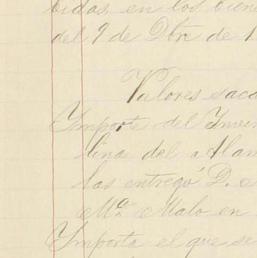 bidas en los bienes
del 9 de Dbre de 1
Valores saca
Importe del Inven
lina del atlan
las entregó D.
Ma. Malo en
Importa el que se